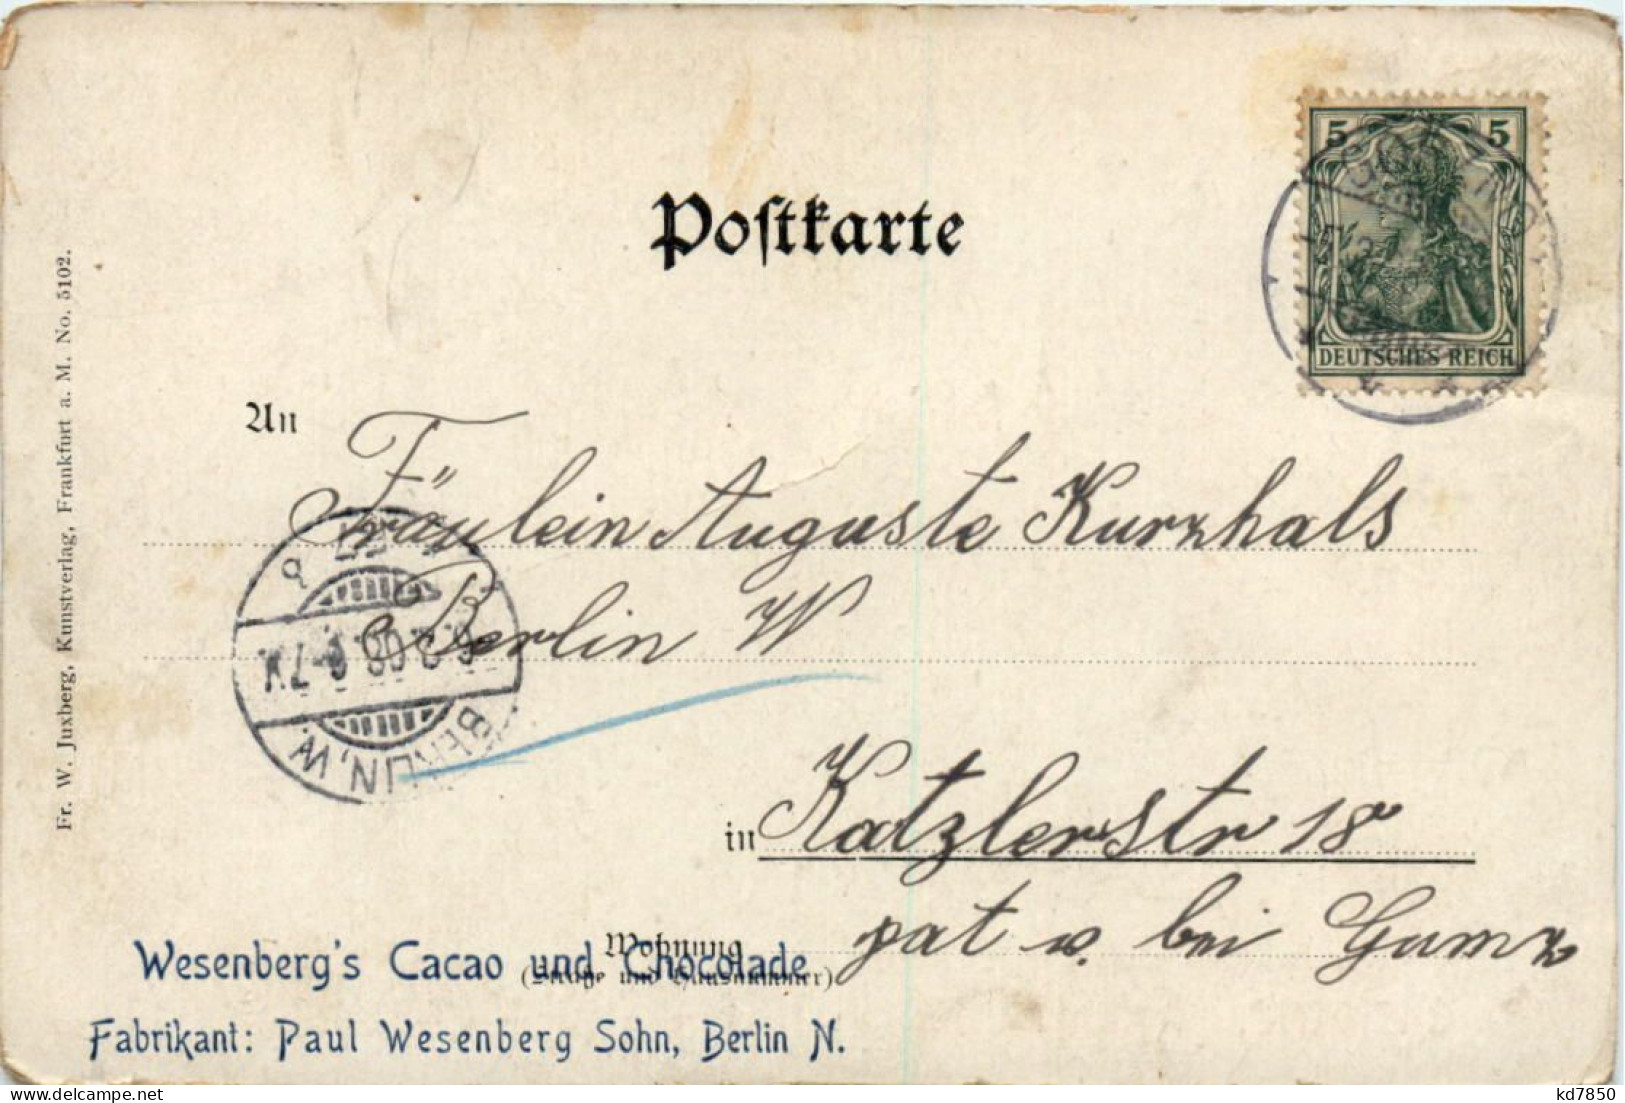 Postkarte
5 5
DEUTSCHES REICH
An
Fräulein Auguste Kurzhals
Berlin W
in Katzlerstr 18
pat v. bei Gumz
Wohnung
(Straße und Hausnummer)
BERLIN, W.
Wesenberg's Cacao und Chocolade
Fabrikant: Paul Wesenberg Sohn, Berlin N.
Fr. W. Juxberg, Kunstverlag, Frankfurt a. M. No. 5102.
kd7850